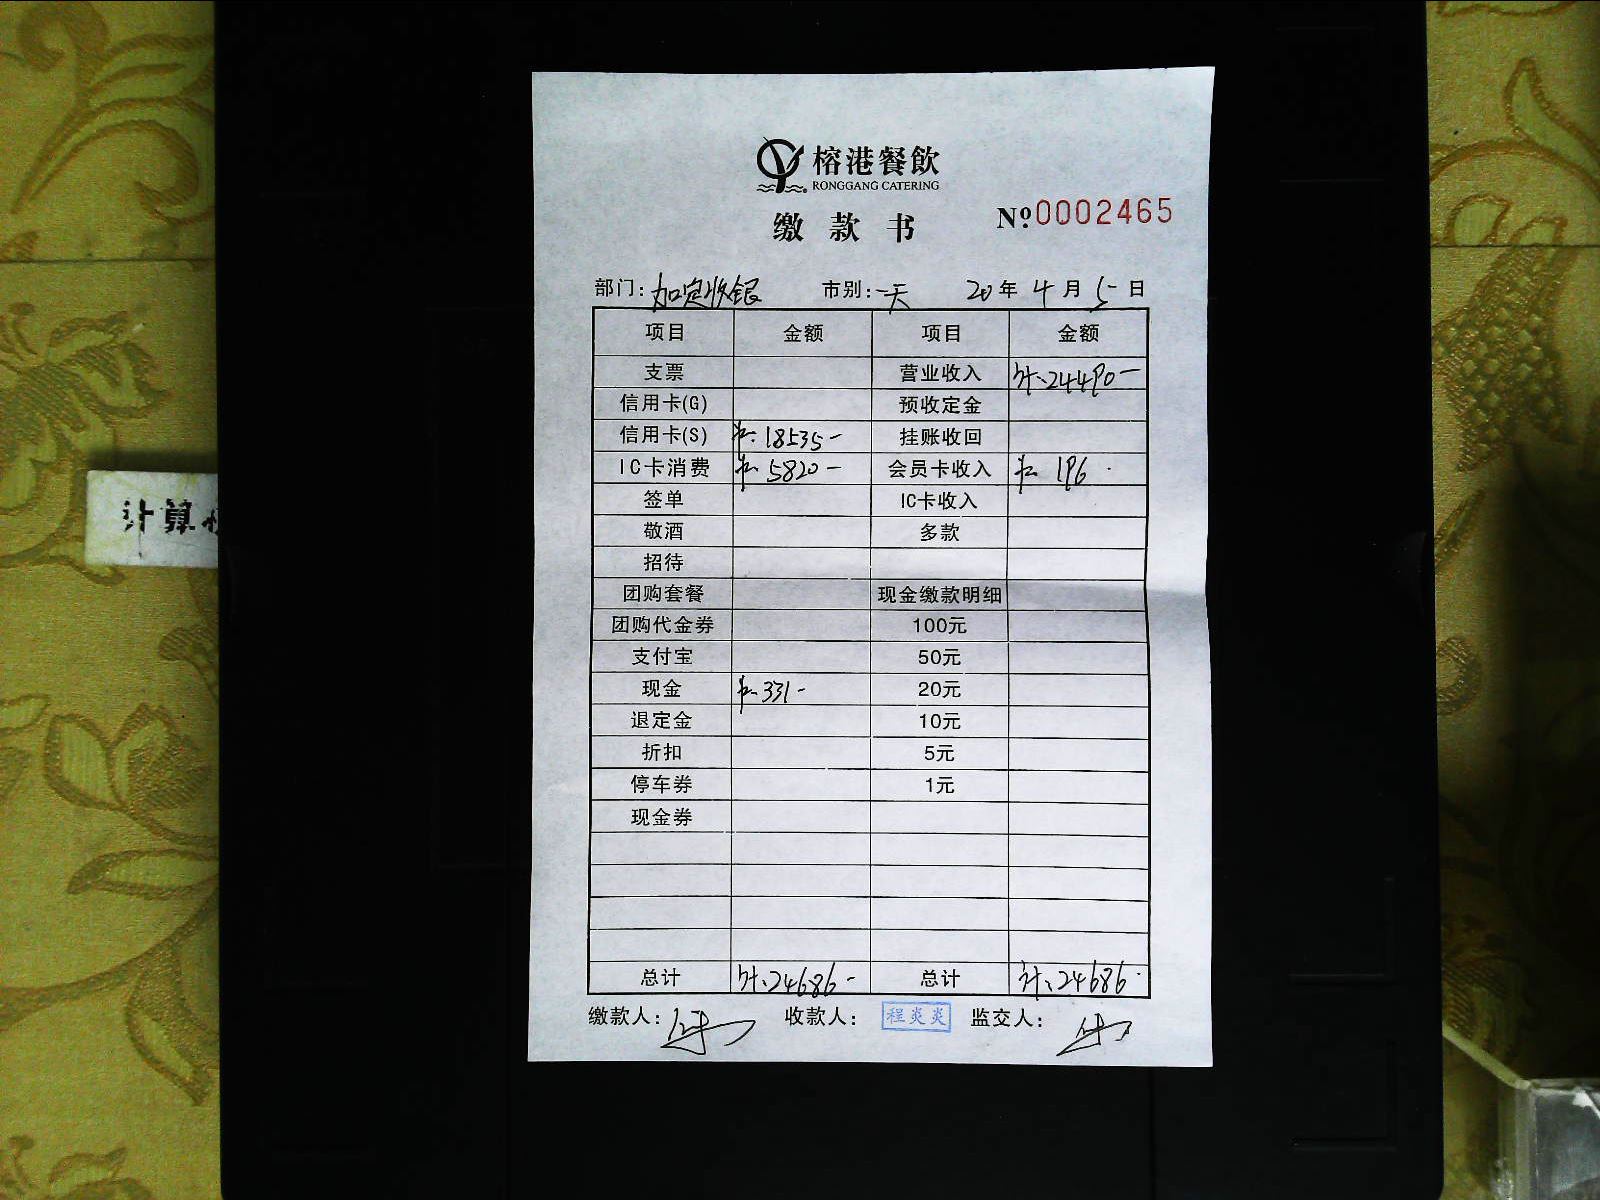 榕港餐飲
RONGGANG CATERING
缴款书
№0002465
部门: 加定收银 市别: 一天 20年4月5日
项目 金额 项目 金额
支票 营业收入 24490-
信用卡(G) 预收定金
信用卡(S) 18535- 挂账收回
IC卡消费 5820- 会员卡收入 196
签单 IC卡收入
敬酒 多款
招待
团购套餐 现金缴款明细
团购代金券 100元
支付宝 50元
现金 331- 20元
退定金 10元
折扣 5元
停车券 1元
现金券
总计 24686- 总计 24686
缴款人: 收款人: 程炎炎 监交人:
计算